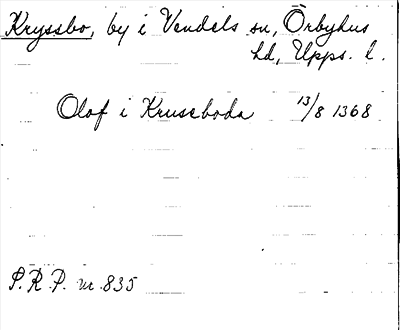 Kryssbo, by i Vendels sn, Örbyhus
hd, Upps. l.
Olof i Kruseboda 13/8 1368
S.R.P. nr. 835